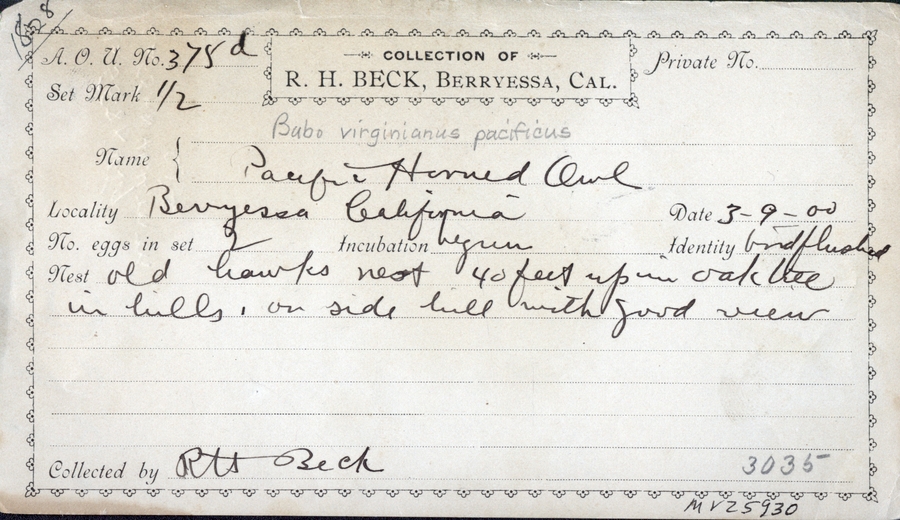 1858
A. O. U. No. 375d
COLLECTION OF
R. H. BECK, BERRYESSA, CAL.
Private No.
Set Mark 1/2
Bubo virginianus pacificus
Name { Pacific Horned Owl
Locality Berryessa California Date 3-9-00
No. eggs in set 2 Incubation begun Identity bird flushed
Nest old hawks nest 40 feet up in oak tree
in hills, on side hill with good view
Collected by RH Beck 3035
MVZ5930